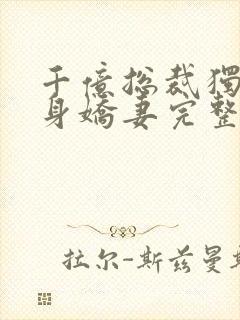 千億総裁獨
身嬌妻完整
拉尔-斯兹曼